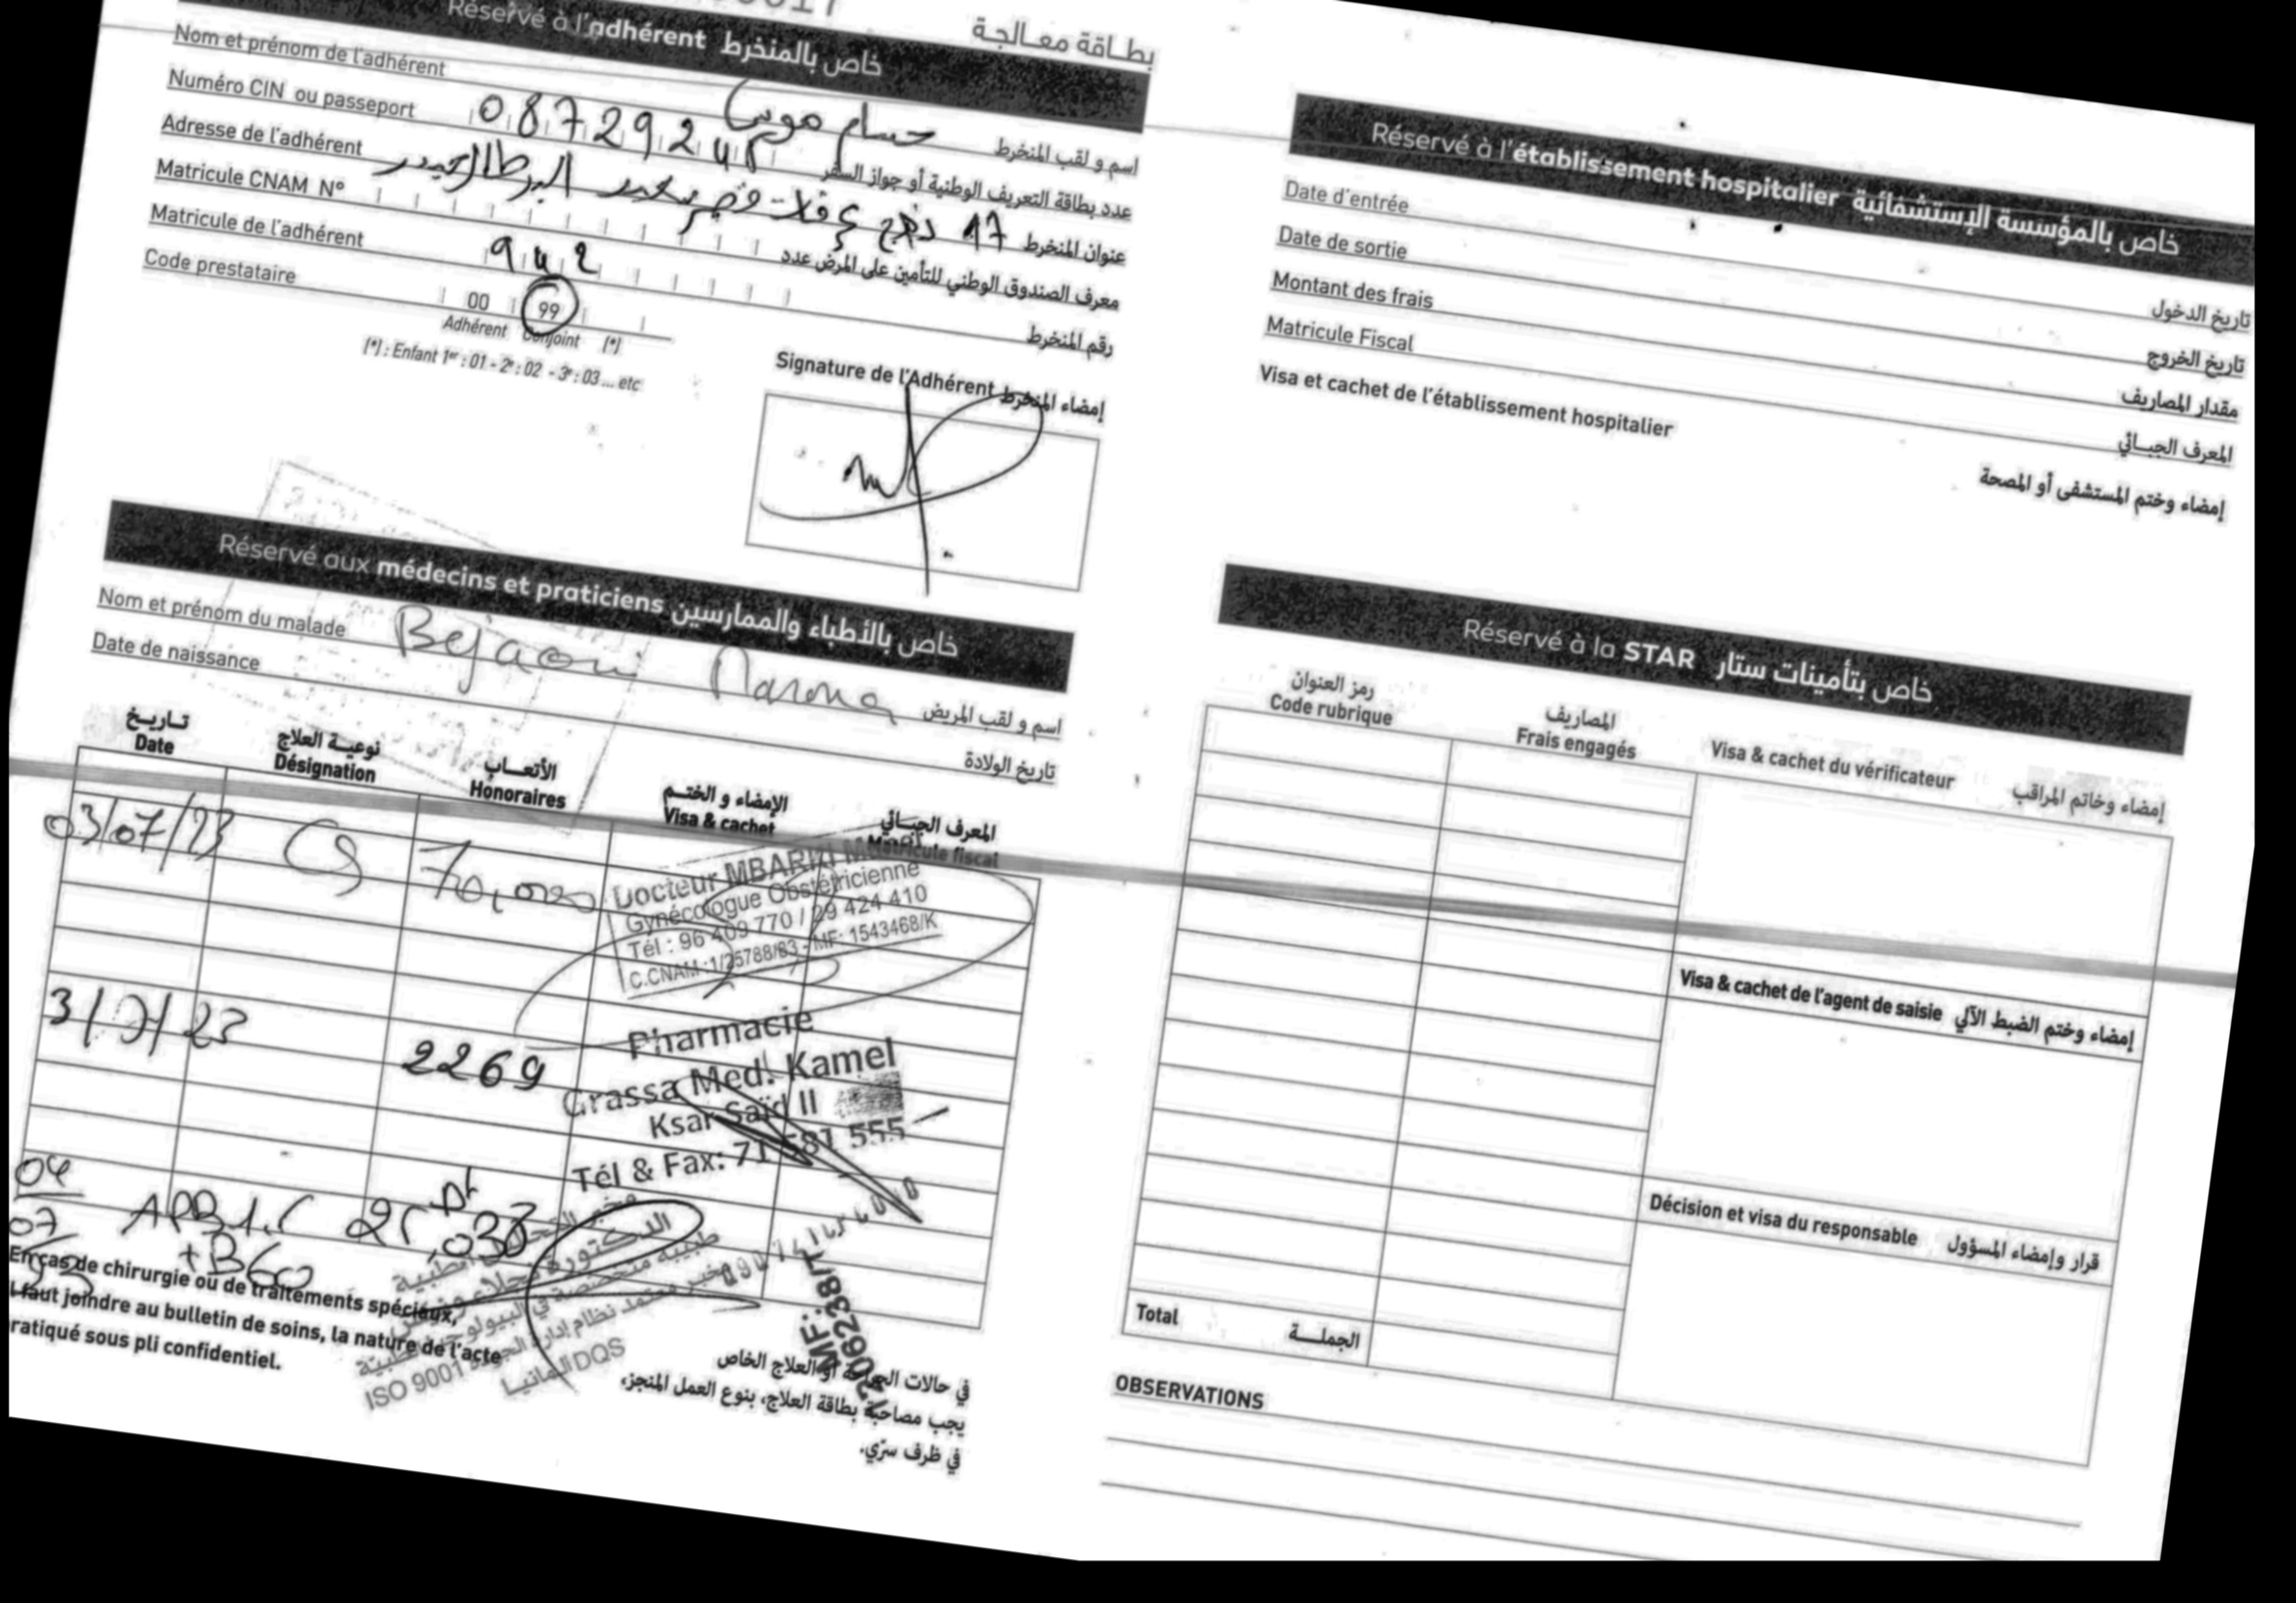 بطـاقة معـالجـة
Réservé à l'adhérent خاص بالمنخرط
Nom et prénom de l'adhérent حسام موسى اسم و لقب المنخرط
Numéro CIN ou passeport 0872924 عدد بطاقة التعريف الوطنية أو جواز السفر
Adresse de l'adhérent 17 نهج سعيد عنوان المنخرط
Matricule CNAM N° معرف الصندوق الوطني للتأمين على المرض عدد
Matricule de l'adhérent 942 رقم المنخرط
Code prestataire 00 99
Adhérent Conjoint (*)
(*) : Enfant 1er : 01 - 2e : 02 - 3e : 03 ... etc
Signature de l'Adhérent إمضاء المنخرط
Réservé aux médecins et praticiens خاص بالأطباء والممارسين
Nom et prénom du malade Bejaoui اسم و لقب المريض
Date de naissance تاريخ الولادة
تـاريـخ نوعيـة العلاج الأتعـاب الإمضاء و الختـم المعرف الجبـائي
Date Désignation Honoraires Visa & cachet Matricule fiscal
03/07/23 CS 70,000
Docteur MBARKI
Gynécologue Obstétricienne
Tél : 96 409 770 / 29 424 410
C.CNAM :1/25788/83 - MF: 1543468/K
3/7/23 2269
Pharmacie
Grassa Med. Kamel
Ksar Saïd II
Tél & Fax: 71 581 555
04
07
23
APB1.C
+B60
الدكتورة نجلاء
ISO 9001 DQS المانيا
En cas de chirurgie ou de traitements spéciaux,
il faut joindre au bulletin de soins, la nature de l'acte
pratiqué sous pli confidentiel.
في حالات الجراحة أو العلاج الخاص
يجب مصاحبة بطاقة العلاج، بنوع العمل المنجز،
في ظرف سرّي.
Réservé à l'établissement hospitalier خاص بالمؤسسة الإستشفائية
Date d'entrée تاريخ الدخول
Date de sortie تاريخ الخروج
Montant des frais مقدار المصاريف
Matricule Fiscal المعرف الجبـائي
Visa et cachet de l'établissement hospitalier إمضاء وختم المستشفى أو المصحة
Réservé à la STAR خاص بتأمينات ستار
رمز العنوان المصاريف
Code rubrique Frais engagés Visa & cachet du vérificateur إمضاء وخاتم المراقب
Visa & cachet de l'agent de saisie إمضاء وختم الضبط الآلي
Décision et visa du responsable قرار وإمضاء المسؤول
Total الجملـــة
OBSERVATIONS